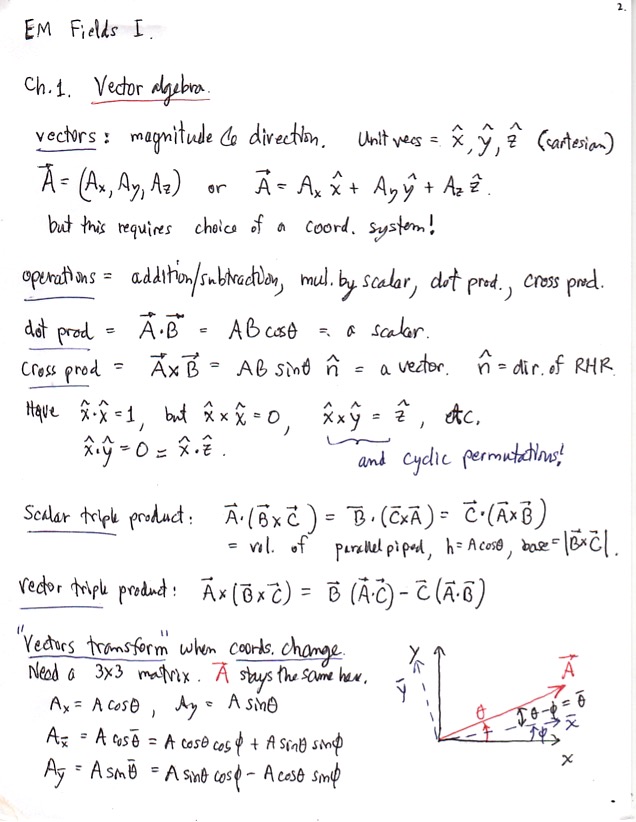 2.
EM Fields I.
Ch.1. Vector algebra.
vectors: magnitude & direction. Unit vecs = x̂, ŷ, ẑ (cartesian)
A⃗ = (Ax, Ay, Az) or A⃗ = Ax x̂ + Ay ŷ + Az ẑ.
but this requires choice of a coord. system!
operations = addition/subtraction, mul. by scalar, dot prod., cross prod.
dot prod = A⃗·B⃗ = AB cosθ = a scalar.
Cross prod = A⃗×B⃗ = AB sinθ n̂ = a vector. n̂ = dir. of RHR
Have x̂·x̂ = 1, but x̂×x̂ = 0, x̂×ŷ = ẑ, etc.
x̂·ŷ = 0 = x̂·ẑ. and cyclic permutations!
Scalar triple product: A⃗·(B⃗×C⃗) = B⃗·(C⃗×A⃗) = C⃗·(A⃗×B⃗)
= vol. of parallel piped, h = A cosθ, base = |B⃗×C⃗|.
Vector triple product: A⃗×(B⃗×C⃗) = B⃗(A⃗·C⃗) − C⃗(A⃗·B⃗)
"Vectors transform" when coords. change.
Need a 3x3 matrix. A⃗ stays the same here.
Ax = A cosθ, Ay = A sinθ
Ax̄ = A cosθ̄ = A cosθ cosϕ + A sinθ sinϕ
Aȳ = A sinθ̄ = A sinθ cosϕ − A cosθ sinϕ
y
ȳ
A⃗
θ
θ−ϕ = θ̄
ϕ
x̄
x